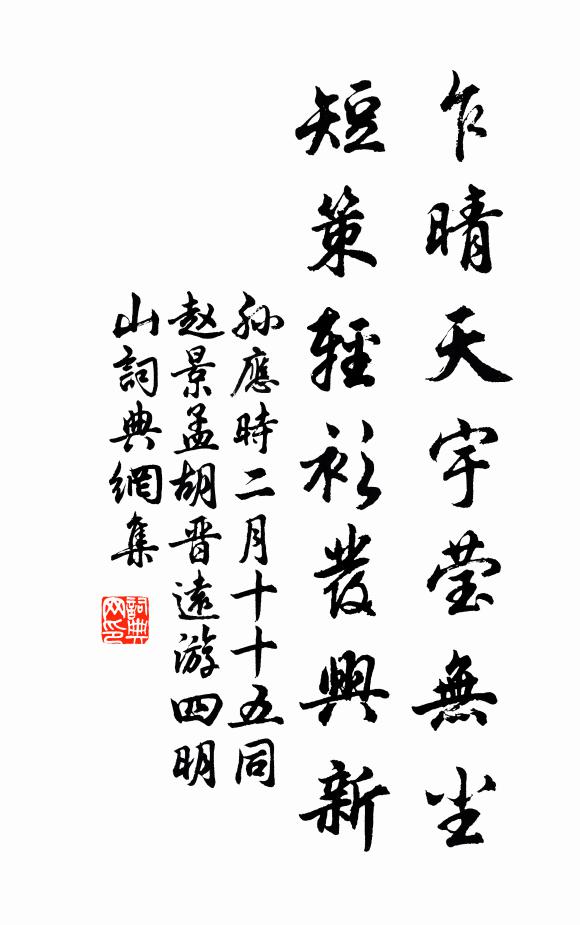 乍晴天宇莹無尘
短策輕衫發興新
孙應時二月十十五同
赵景孟胡晋遠游四明
山詞典網集
詞典
网印